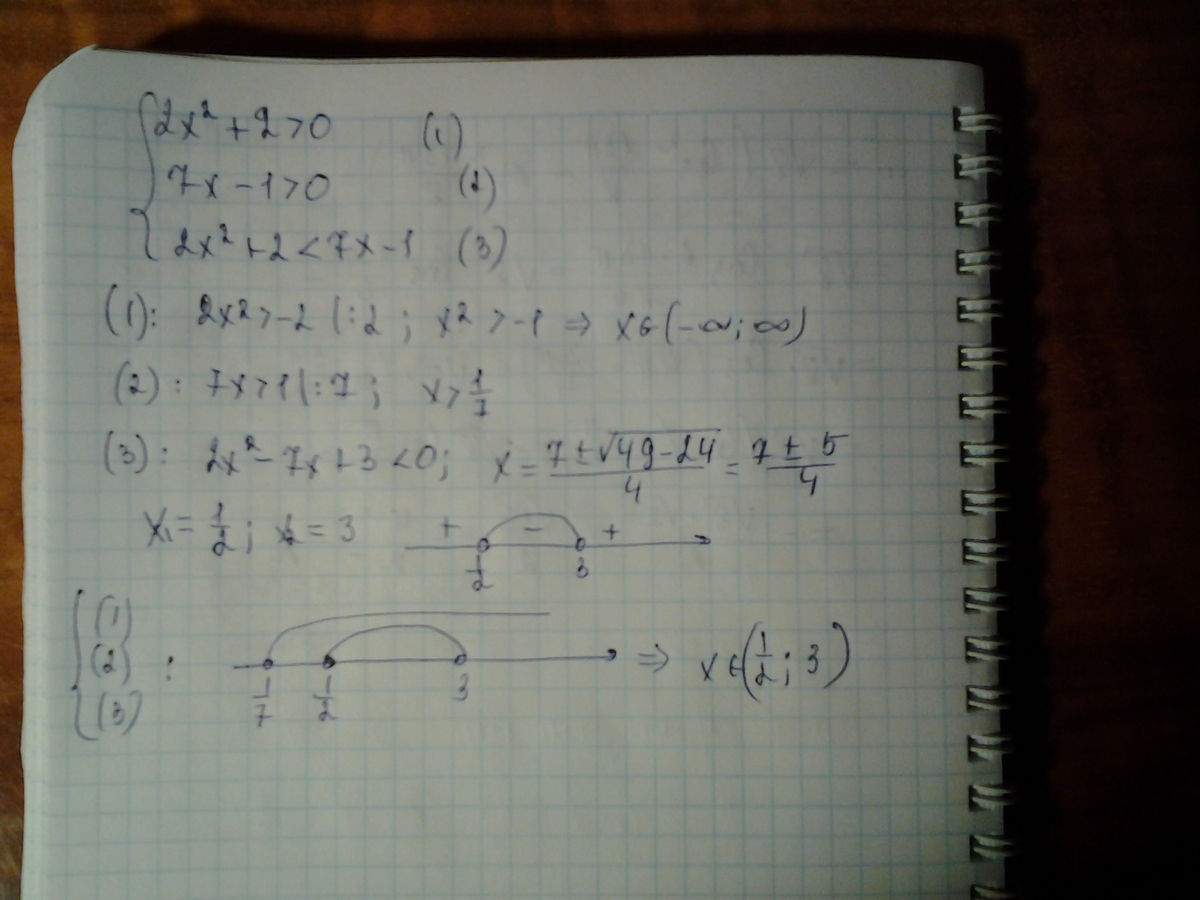 { 2x² + 2 > 0 (1)
7x − 1 > 0 (2)
2x² + 2 < 7x − 1 (3)
(1): 2x² > −2 |:2 ; x² > −1 ⇒ x ∈ (−∞; ∞)
(2): 7x > 1 |:7 ; x > 1/7
(3): 2x² − 7x + 3 < 0; x = (7 ± √(49 − 24))/4 = (7 ± 5)/4
x₁ = 1/2 ; x₂ = 3 + − +
1/2 3
{ (1)
(2) : ⇒ x ∈ (1/2; 3)
(3)
1/7 1/2 3